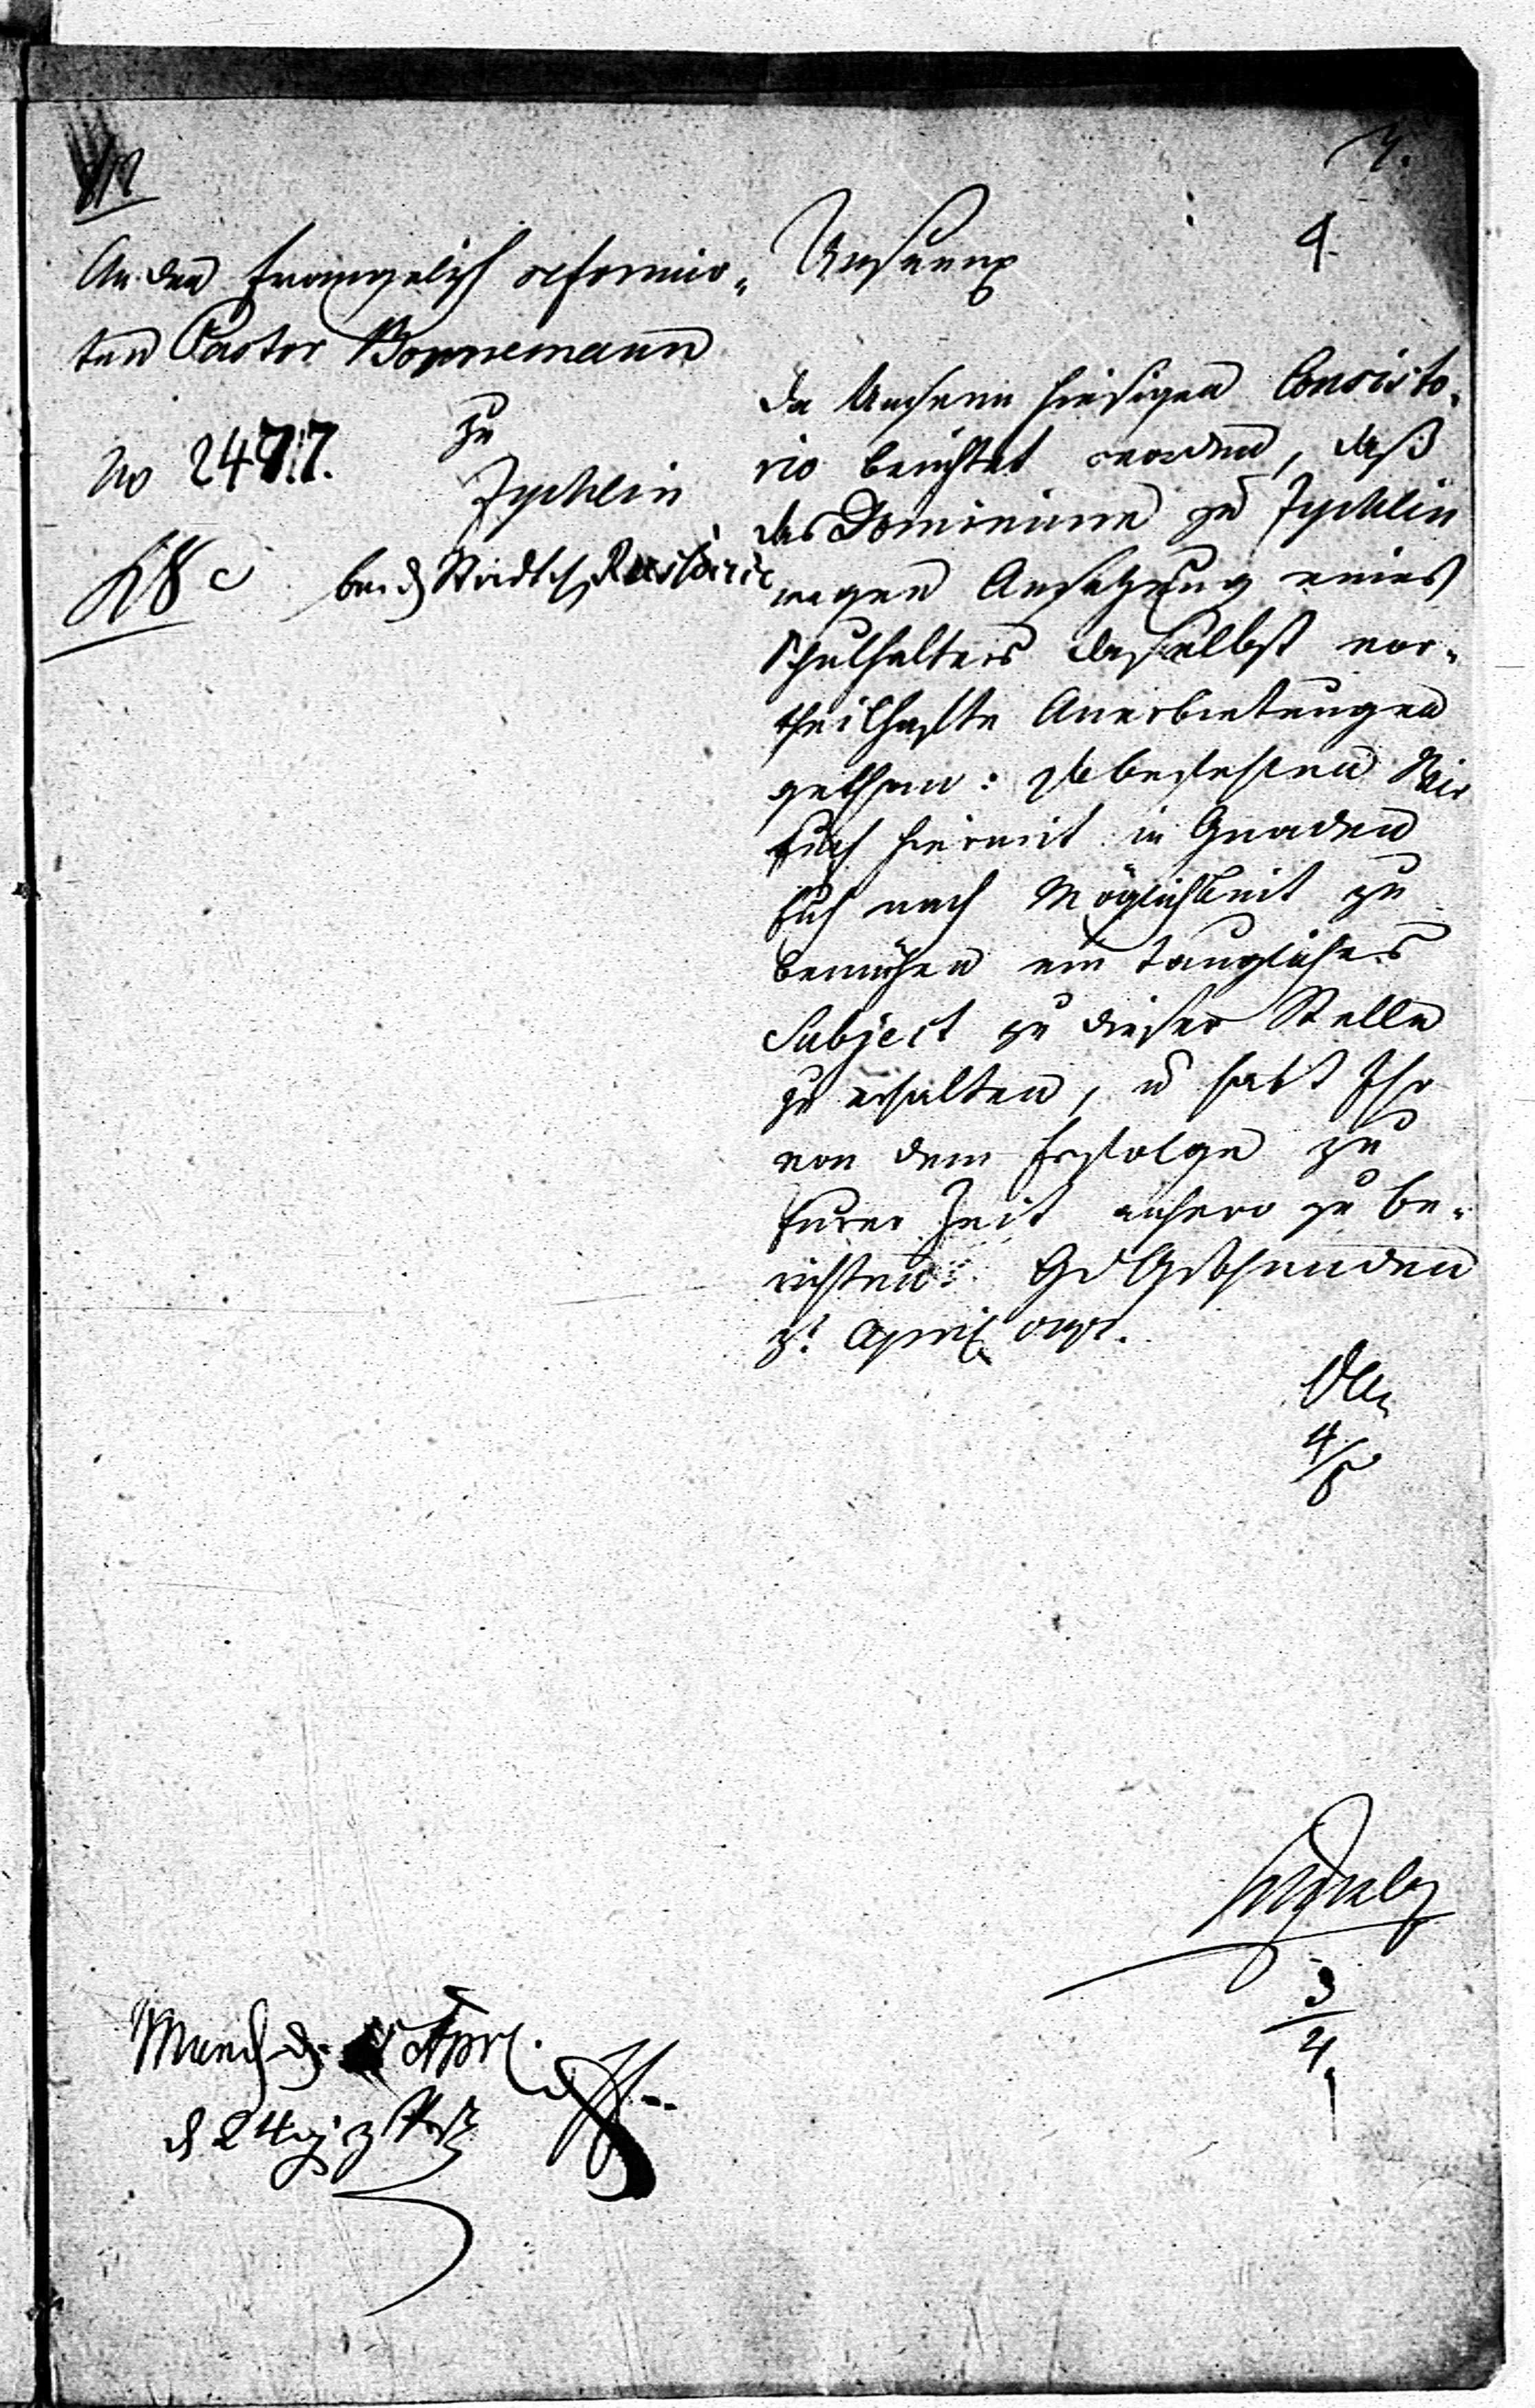 An den Evangelisch reformir-
ten Pastor Bornemann
zu
Zychlin
No 2477.
4
Unsern
Da Unserm hiesigen Consisto-
rio berichtet worden, daß
das Dominium zu Zychlin
wegen Ansetzung eines
Schulhalters daselbst vor-
theilhafte Anerbietungen
gethan: so befehlen Wir
Euch hiermit in Gnaden
Euch nach Möglichkeit zu
bemühen ein taugliches
Subject zu dieser Stelle
zu erhalten, u habt Ihr
von dem Erfolge zu
seiner Zeit anhero zu be-
richten. Gd
April
4/
3
4
Mund. d. Apr.